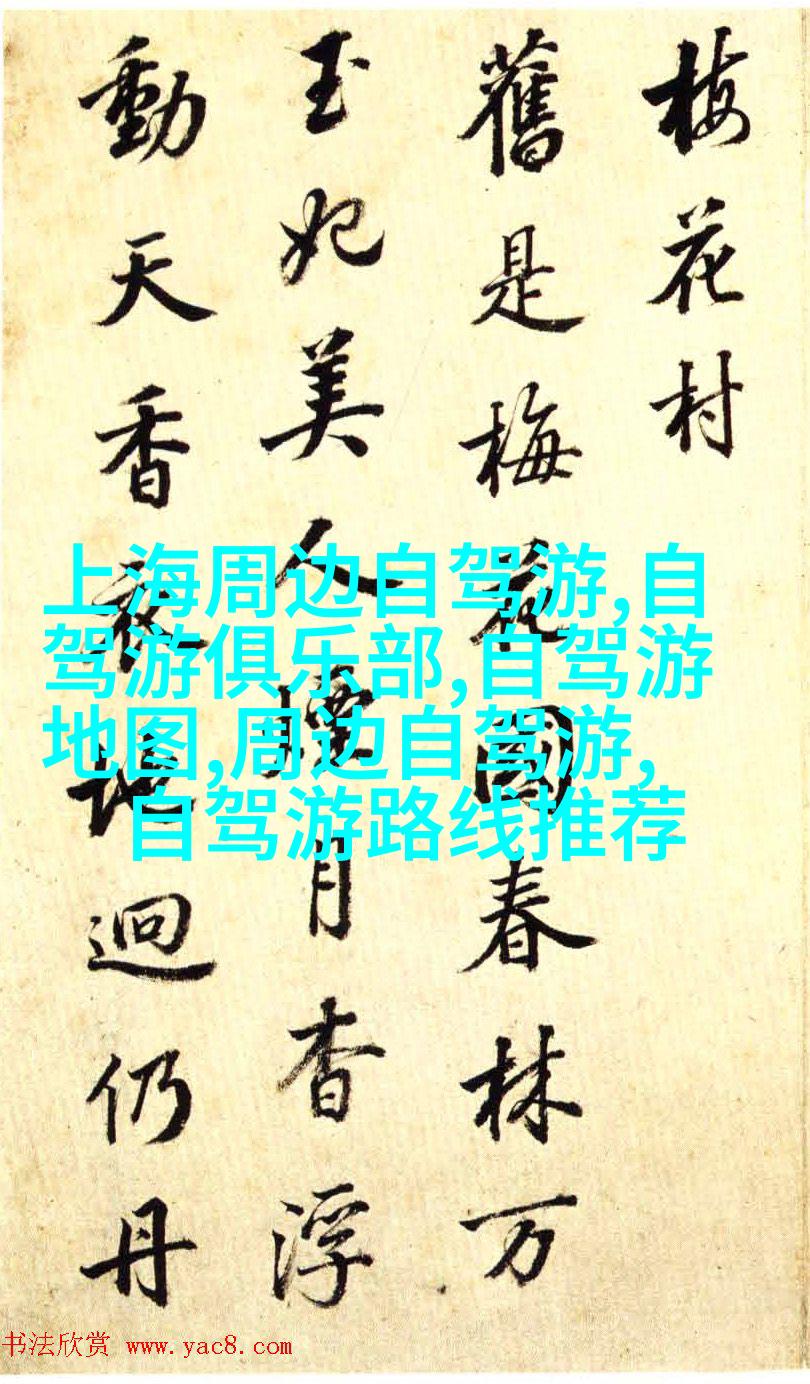 梅花村
舊是梅花園春林万
玉妃美人煙月杳浮
動天香地迥仍丹
上海周边自驾游,自
驾游俱乐部,自驾游
地图,周边自驾游,
自驾游路线推荐
书法欣赏 www.yac8.com